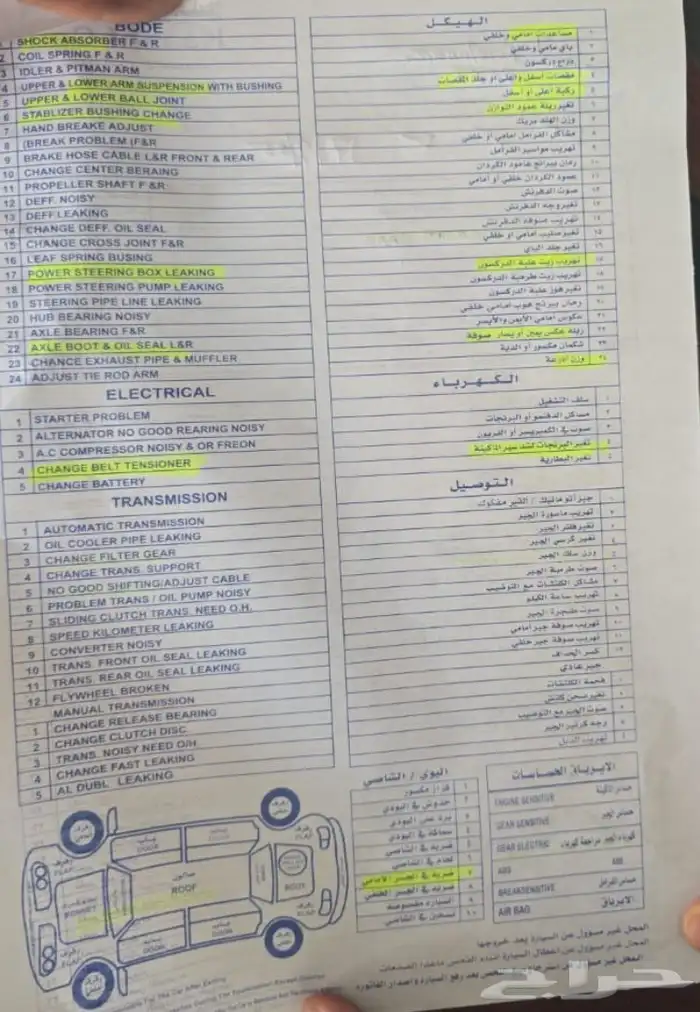 BODE
1 SHOCK ABSORBER F & R
2 COIL SPRING F & R
3 IDLER & PITMAN ARM
4 UPPER & LOWER ARM SUSPENSION WITH BUSHING
5 UPPER & LOWER BALL JOINT
6 STABLIZER BUSHING CHANGE
7 HAND BREAKE ADJUST
8 (BREAK PROBLEM (F&R
9 BRAKE HOSE CABLE L&R FRONT & REAR
10 CHANGE CENTER BERAING
11 PROPELLER SHAFT F &R
12 DEFF. NOISY
13 DEFF.LEAKING
14 CHANGE DEFF. OIL SEAL
15 CHANGE CROSS JOINT F&R
16 LEAF SPRING BUSING
17 POWER STEERING BOX LEAKING
18 POWER STEERING PUMP LEAKING
19 STEERING PIPE LINE LEAKING
20 HUB BEARING NOISY
21 AXLE BEARING F&R
22 AXLE BOOT & OIL SEAL L&R
23 CHANCE EXHAUST PIPE & MUFFLER
24 ADJUST TIE ROD ARM
ELECTRICAL
1 STARTER PROBLEM
2 ALTERNATOR NO GOOD REARING NOISY
3 A.C COMPRESSOR NOISY & OR FREON
4 CHANGE BELT TENSIONER
5 CHANGE BATTERY
TRANSMISSION
1 AUTOMATIC TRANSMISSION
2 OIL COOLER PIPE LEAKING
3 CHANGE FILTER GEAR
4 CHANGE TRANS. SUPPORT
5 NO GOOD SHIFTING/ADJUST CABLE
6 PROBLEM TRANS / OIL PUMP NOISY
7 SLIDING CLUTCH TRANS. NEED O.H.
8 SPEED KILOMETER LEAKING
9 CONVERTER NOISY
10 TRANS. FRONT OIL SEAL LEAKING
11 TRANS. REAR OIL SEAL LEAKING
12 FLYWHEEL BROKEN
MANUAL TRANSMISSION
1 CHANGE RELEASE BEARING
2 CHANGE CLUTCH DISC
3 TRANS. NOISY NEED O/H
4 CHANGE FAST LEAKING
5 AL DUBL LEAKING
الهيكل
١ مساعدات امامي وخلفي
٢ ياي مامي وخلفي
٣ دركسون
٤ مقصات اسفل واعلى او جلد المقصات
٥ ركبة اعلى او اسفل
٦ تغير ربلة عمود التوازن
٧ وزن الهند بريك
٨ مشاكل الفرامل امامي او خلفي
٩ تهريب مواسير الفرامل
١٠ رمان بيرانج عامود الكردان
١١ عمود الكردان خلفي أو أمامي
١٢ صوت الدفرنش
١٣ تغير وجه الدفرنش
١٤ تهريب صوفة الدفرنش
١٥ تغير صليب امامي او خلفي
١٦ تغير جلد الياي
١٧ تهريب زيت علبة الدركسون
١٨ تهريب زيت طرمبة الدركسون
١٩ تغير هوز علبة الدركسون
٢٠ رمان بيرنج هوب امامي خلفي
٢١ عكوس امامي الأيمن والأيسر
٢٢ ربلة عكس يمين أو يسار صوفة
٢٣ شكمان مكسور أو الدبة
٢٤ وزن اذرعة
الكهرباء
١ سلف التشغيل
٢ مشاكل الدينمو أو البرنجات
٣ صوت في الكمبريسر أو الفريون
٤ تغير البرنجات لشد سير الماكينة
٥ تغير البطارية
التوصيل
١ جير أتوماتيك / القير مفكوك
٢ تهريب ماسورة الجير
٣ تغير فلتر الجير
٤ تغير كرسي الجير
٥ وزن سلك الجير
٦ صوت طرمبة الجير
٧ مشاكل الكلتشات مع التوضيب
٨ تهريب ساعة الكيلو
٩ صوت طنجرة الجير
١٠ تهريب صوفة جير أمامي
١١ تهريب صوفة جير خلفي
١٢ كسر الحداف
جير عادي
١ فحمة الكلتشات
٢ تغير صحن كلتش
٣ صوت الجير مع التوضيب
٤ وجه كرتير الجير
٥ تهريب الدبل
البودي / الشاصي
١ قزاز مكسور
٢ خدوش في البودي
٣ برد على البودي
٤ سماكة في البودي
٥ ضربة في الشاصي
٦ لحام في الشاصي
٧ ضربة في الجسر الأمامي
٨ ضربة في الجسر الخلفي
٩ السيارة مقصوصة
١٠ تسحين في الشاصي
الايرباق الحساسات
ENGINE SENSITIVE حساس الماكينة
GEAR SENSITIVE حساس الجير
GEAR ELECTRIC كهرباء الجير مراجعة كهرباء
ABS ABS
BREAKSENSITIVE حساس الفرامل
AIR BAG الايرباق
رفرف
FLAP
باب
DOOR
صالون
ROOF
BONNET
BOOT
المحل غير مسؤول عن السيارة بعد خروجها
المحل غير مسؤول عن اعطال السيارة اثناء الفحص ماعدا الصدمات
حراج